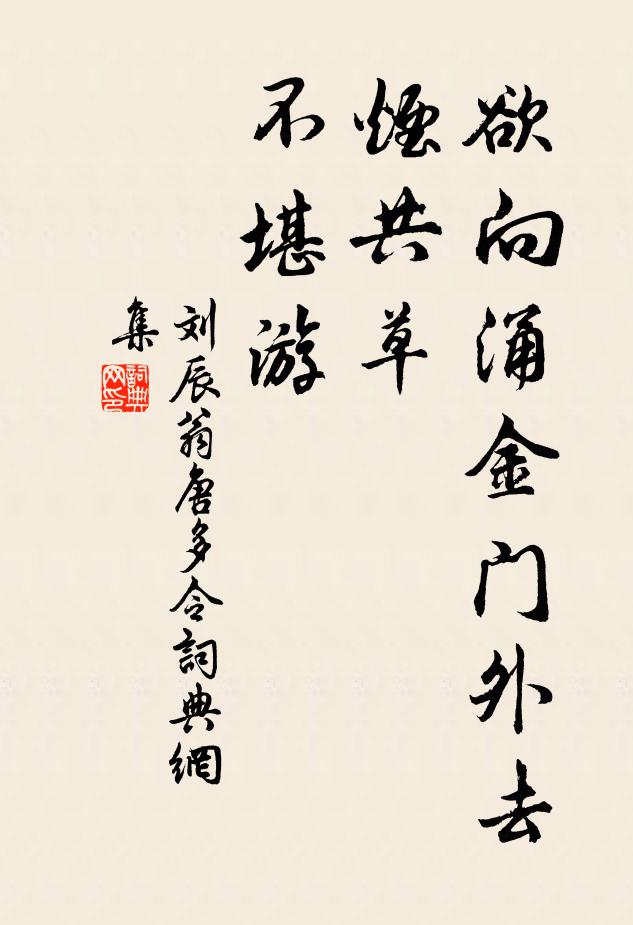 欲向涌金门外去
烟共草
不堪游
刘辰翁唐多令詞典網
集
詞典
网印